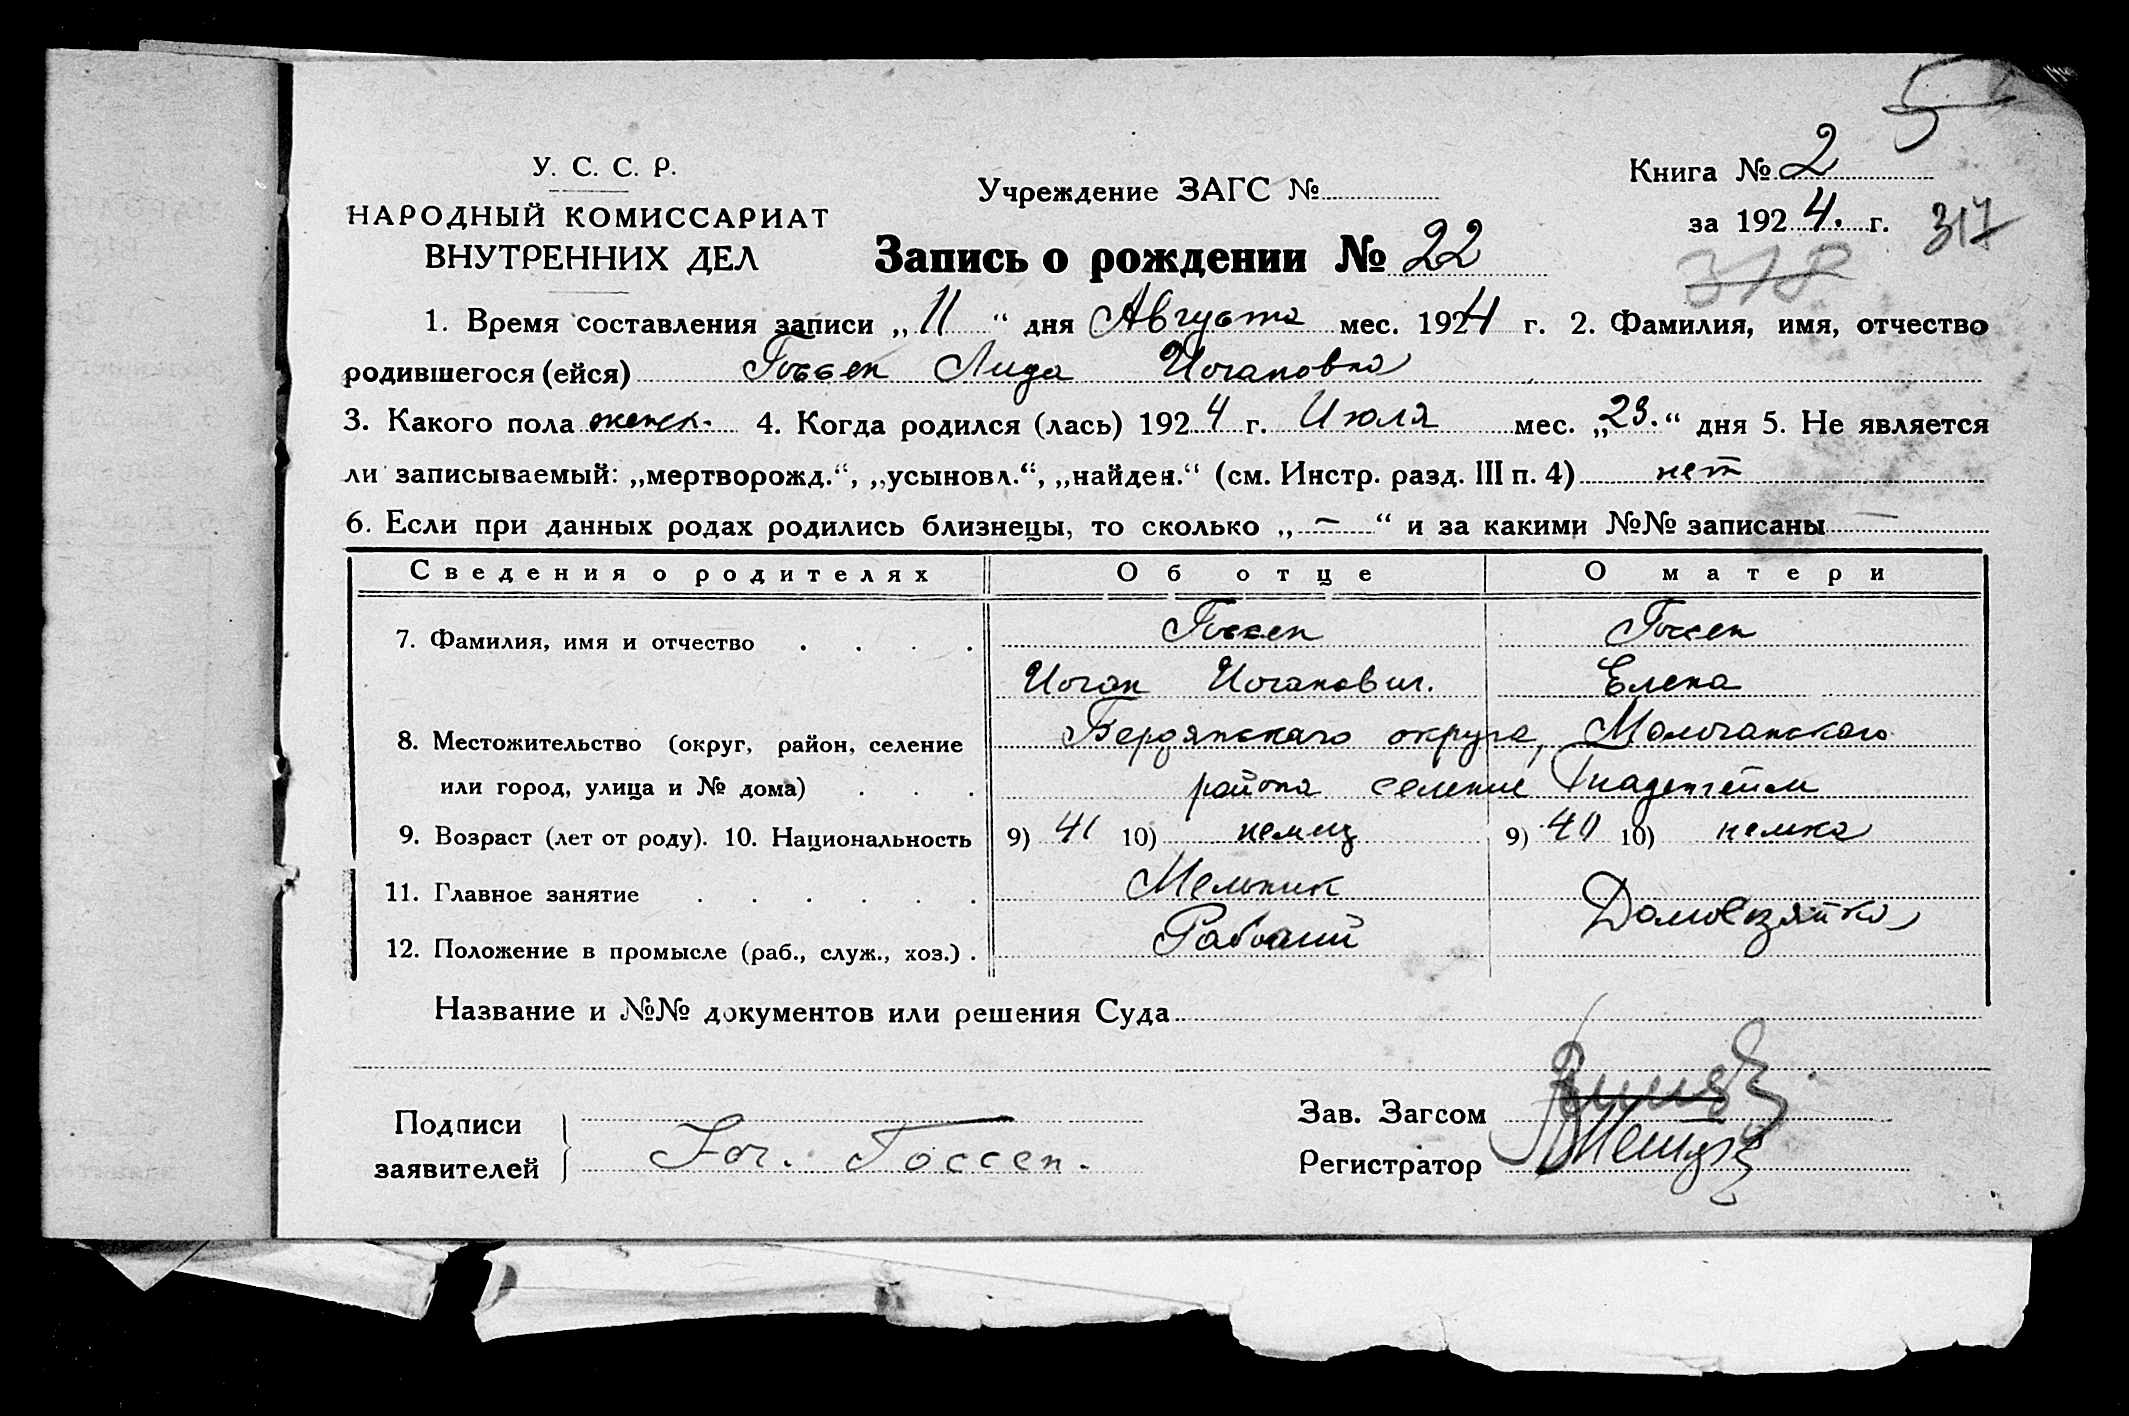 5
У. С. С. Р.
НАРОДНЫЙ КОМИССАРИАТ
ВНУТРЕННИХ ДЕЛ
Учреждение ЗАГС №
Книга № 2
за 1924. г.
317
318
Запись о рождении № 22
1. Время составления записи „11“ дня Августа мес. 1924 г. 2. Фамилия, имя, отчество
родившегося (ейся) Госсен Лида Иогановна
3. Какого пола женск. 4. Когда родился (лась) 1924 г. Июля мес. „23.“ дня 5. Не является
ли записываемый: „мертворожд.“, „усыновл.“, „найден.“ (см. Инстр. разд. III п. 4) нет
6. Если при данных родах родились близнецы, то сколько „—“ и за какими №№ записаны —
Сведения о родителях Об отце О матери
7. Фамилия, имя и отчество . . . . Госсен Госсен
Иоган Иоганович. Елена
8. Местожительство (округ, район, селение Бердянскаго округа, Молочанскаго
или город, улица и № дома) . . . района селение Гнаденгейм
9. Возраст (лет от роду). 10. Национальность 9) 41 10) немец 9) 40 10) немка
11. Главное занятие . . . . . . Мельник Домохозяйка
12. Положение в промысле (раб., служ., хоз.) . Рабочий
Название и №№ документов или решения Суда
Подписи
заявителей
Иог. Госсен.
Зав. Загсом
Регистратор